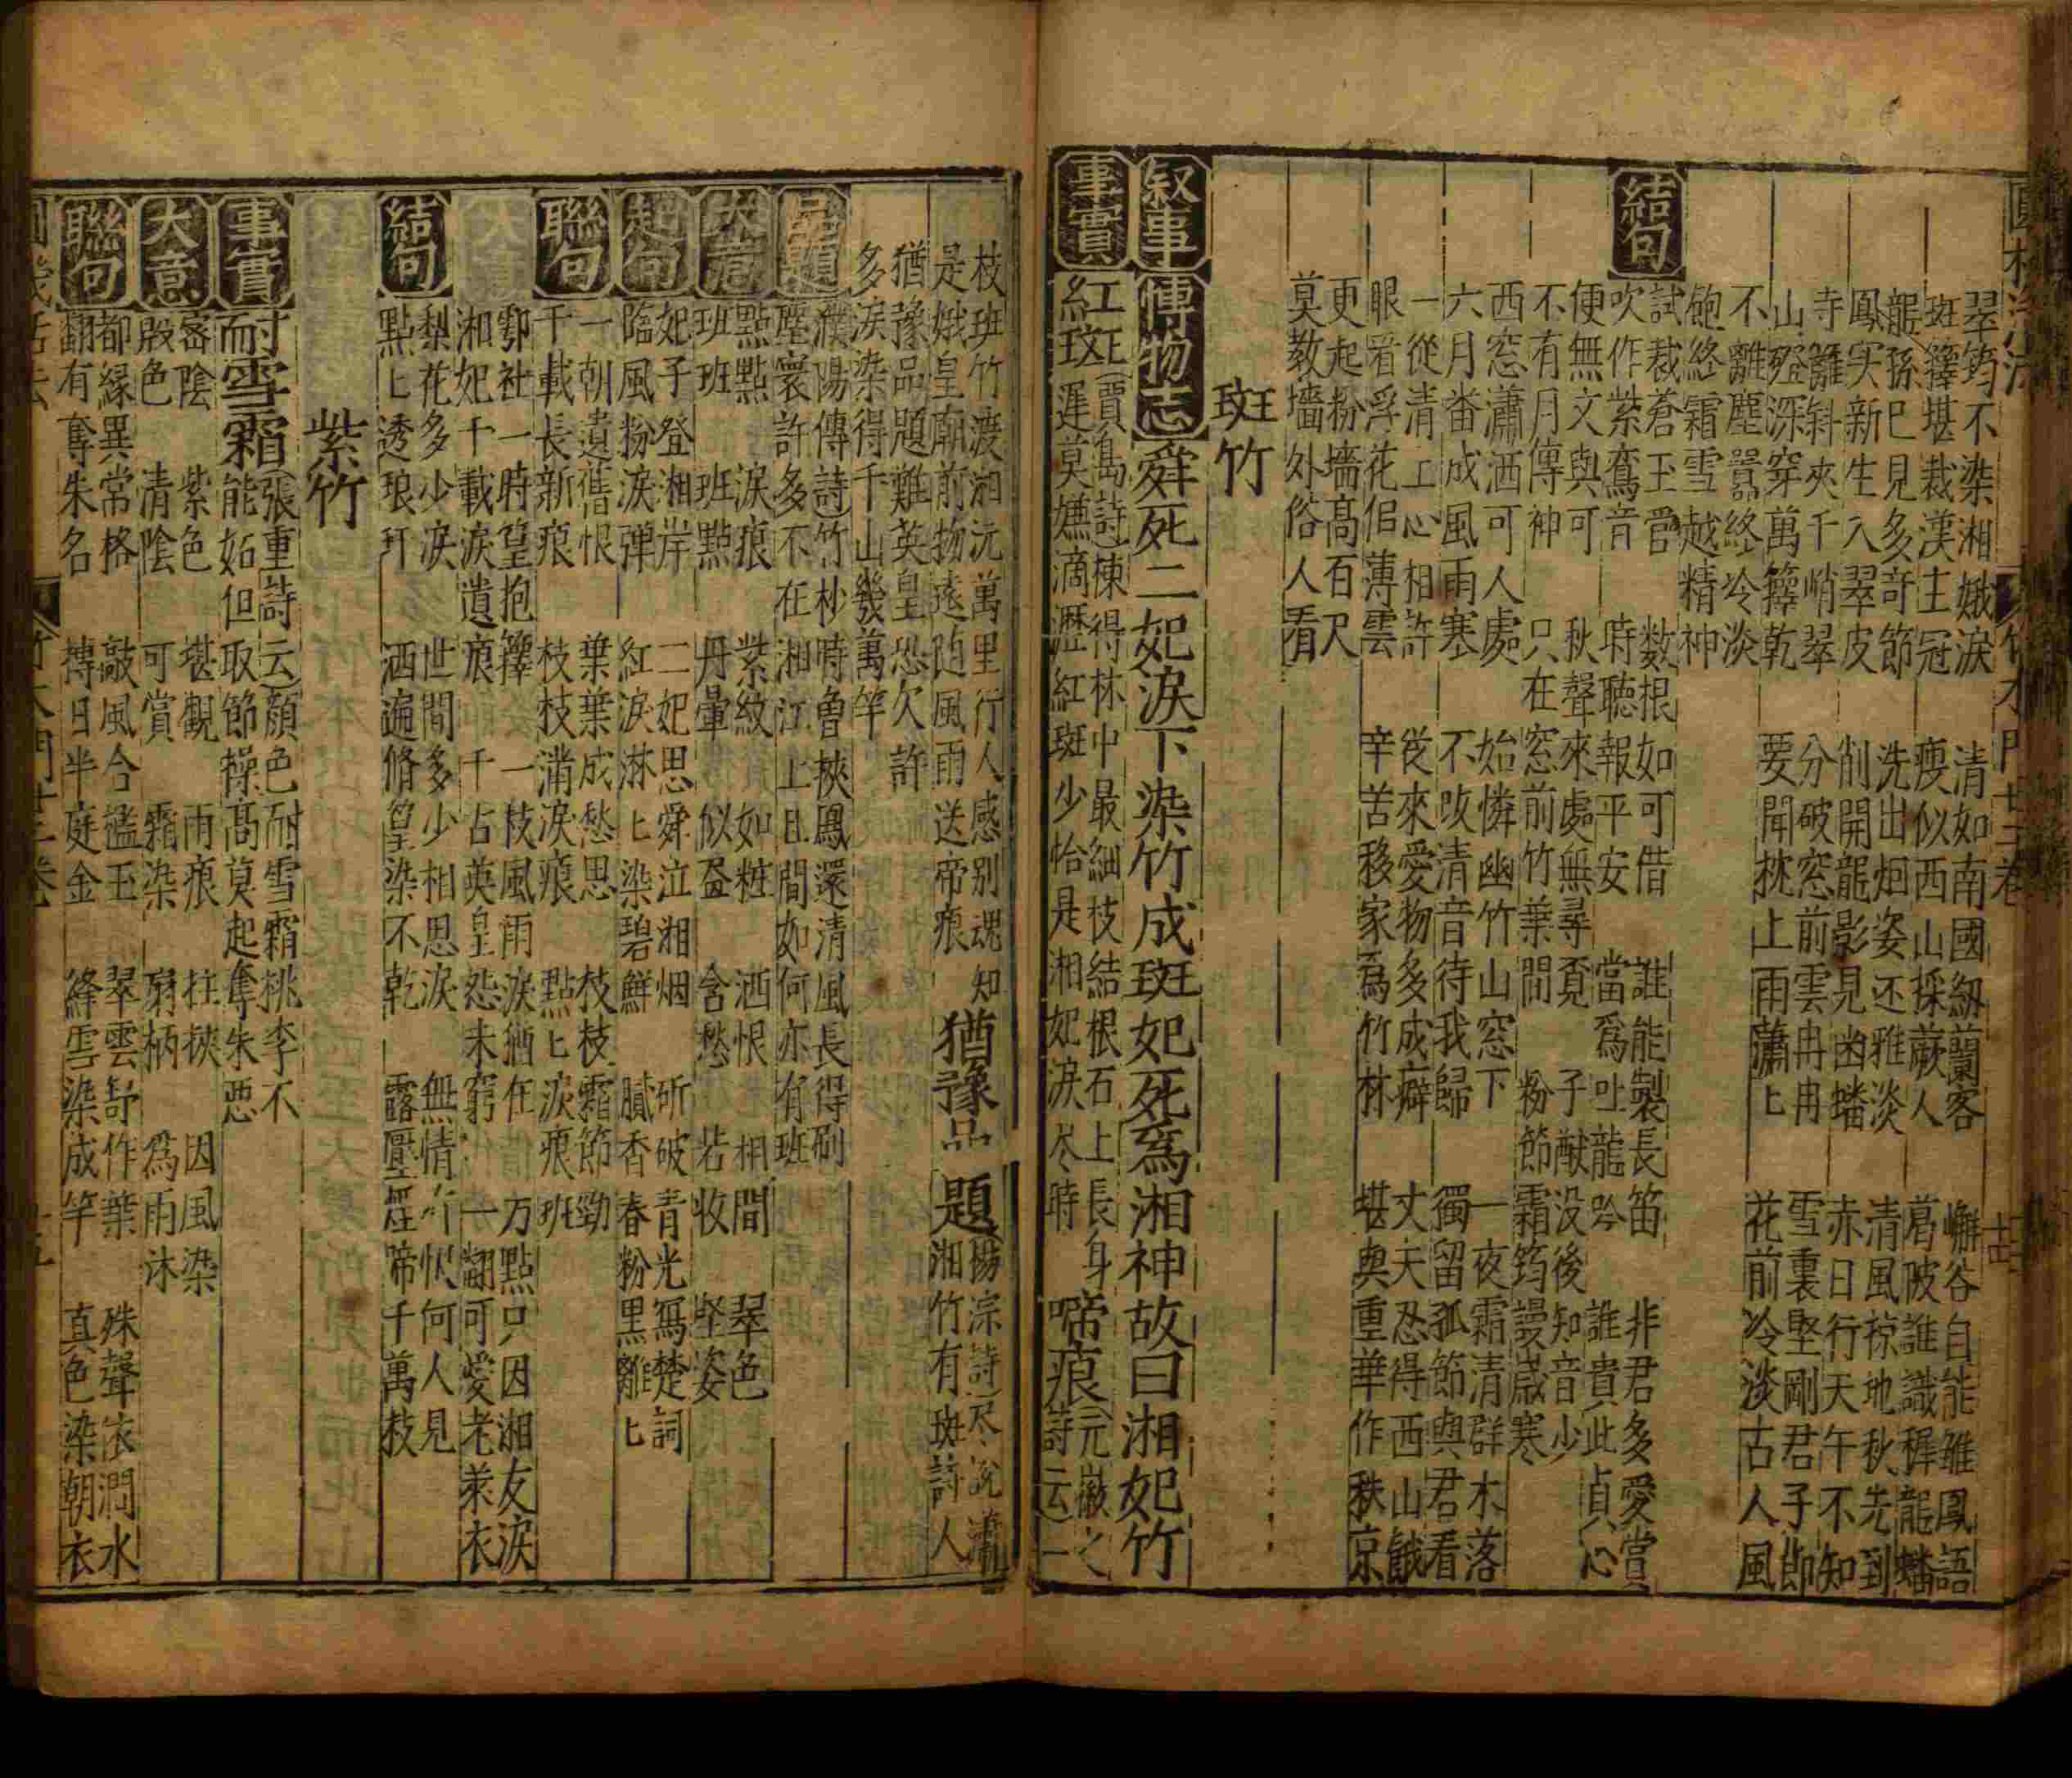 翠筠不染湘娥淚　清如南國紉蘭客　嶰谷自能雖鳳語
斑籜堪裁漢主冠　瘦似西山採蕨人　葛陂誰識稺龍蟠
龍孫巳見多竒節　洗出烟姿还雅淡　清風掠地秋先到
鳳实新生入翠皮　削開龍影見幽蟠　赤日行天午不知
寺籬斜夾千峭翠　分破窓前雲冉冉　雪裏堅剛君子節
山殿深穿萬籜乾　要聞枕上雨蕭匕　花前冷淡古人風
不離塵囂終冷淡
飽終霜雪越精神
結句
試裁蒼玉管　数根如可借　誰能製長笛　非君多愛賞
吹作紫鸞音　時聽報平安　當爲吐龍吟　誰貴此貞心
便無文與可　秋聲來處無尋覔　子猷没後知音少
不有月傳神　只在窓前竹葉間　粉節霜筠謾歲寒
西窓瀟洒可人處　始憐幽竹山窓下　一夜霜清群木落
六月畨成風雨寒　不改清音待我歸　獨留孤節與君看
一從清工心相許　從來愛物多成癖　丈夫忍得西山餓
眼看浮花侣薄雲　辛苦移家爲竹林　堪與重華作秩宗
更起粉墻高百尺
莫教墻外俗人看
斑竹
叙事　愽物志　舜死二妃淚下染竹成斑妃死爲湘神故曰湘妃竹
事實　紅斑　賈島詩揀得林中最細枝結根石上長身
遲莫嫌滴瀝紅斑少恰是湘妃淚尽時　啼痕　元徽之
詩云一
枝斑竹渡湘沅萬里行人感别魂知
是娥皇廟前物遠隨風雨送帝痕　猶豫品題　楊宗詩尽說瀟
湘竹有斑詩人
猶豫品題難英皇恐欠許
多淚染得千山幾萬竿
品題　濮陽傳詩竹杪時魯挾鳳還清風長得刷
塵寰許多不在湘江上且間如何亦有班
大意　點點　淚痕　紫紋　如粧　洒恨　相間　翠色
班班　班點　丹暈　似盔　含愁　若收　堅姿
起句　妃子登湘岸　二妃思舜泣湘烟　斫破青光寫楚詞
臨風粉淚彈　紅淚淋匕染碧鮮　膩香春粉黑離匕
聯句　一朝遺舊恨　葉葉成愁思　枝枝霜節勁
千載長新痕　枝枝淌淚痕　點匕淚痕班
鄠社一時篁抱籜　一枝風雨淚猶在　方點只因湘友淚
湘妃千載淚遺痕　千古英皇怨未窮　一翻可愛老萊衣
結句　梨花多少淚　世間多少相思淚　無情有恨何人見
點匕透琅玕　洒遍脩篁染不乾　露壓烟啼千萬枝
紫竹
事實　耐雪霜　張重詩云顔色耐雪霜桃李不
能妬但取節操高莫起奪朱惡
大意　密陰　紫色　堪觀　雨痕　拄挾　因風染
殷色　清陰　可賞　霜染　扇柄　爲雨沐
聯句　都緣異常格　敲風合檻玉　翠雲竒作葉　殊聲法潤水
翻有奪朱名　摶日半庭金　絳雪染成竿　真色染朝衣